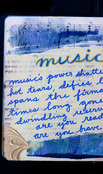 music
music's power shatte
hot tears, defies
spans the
times long gone
dwindling
are you read
are you have